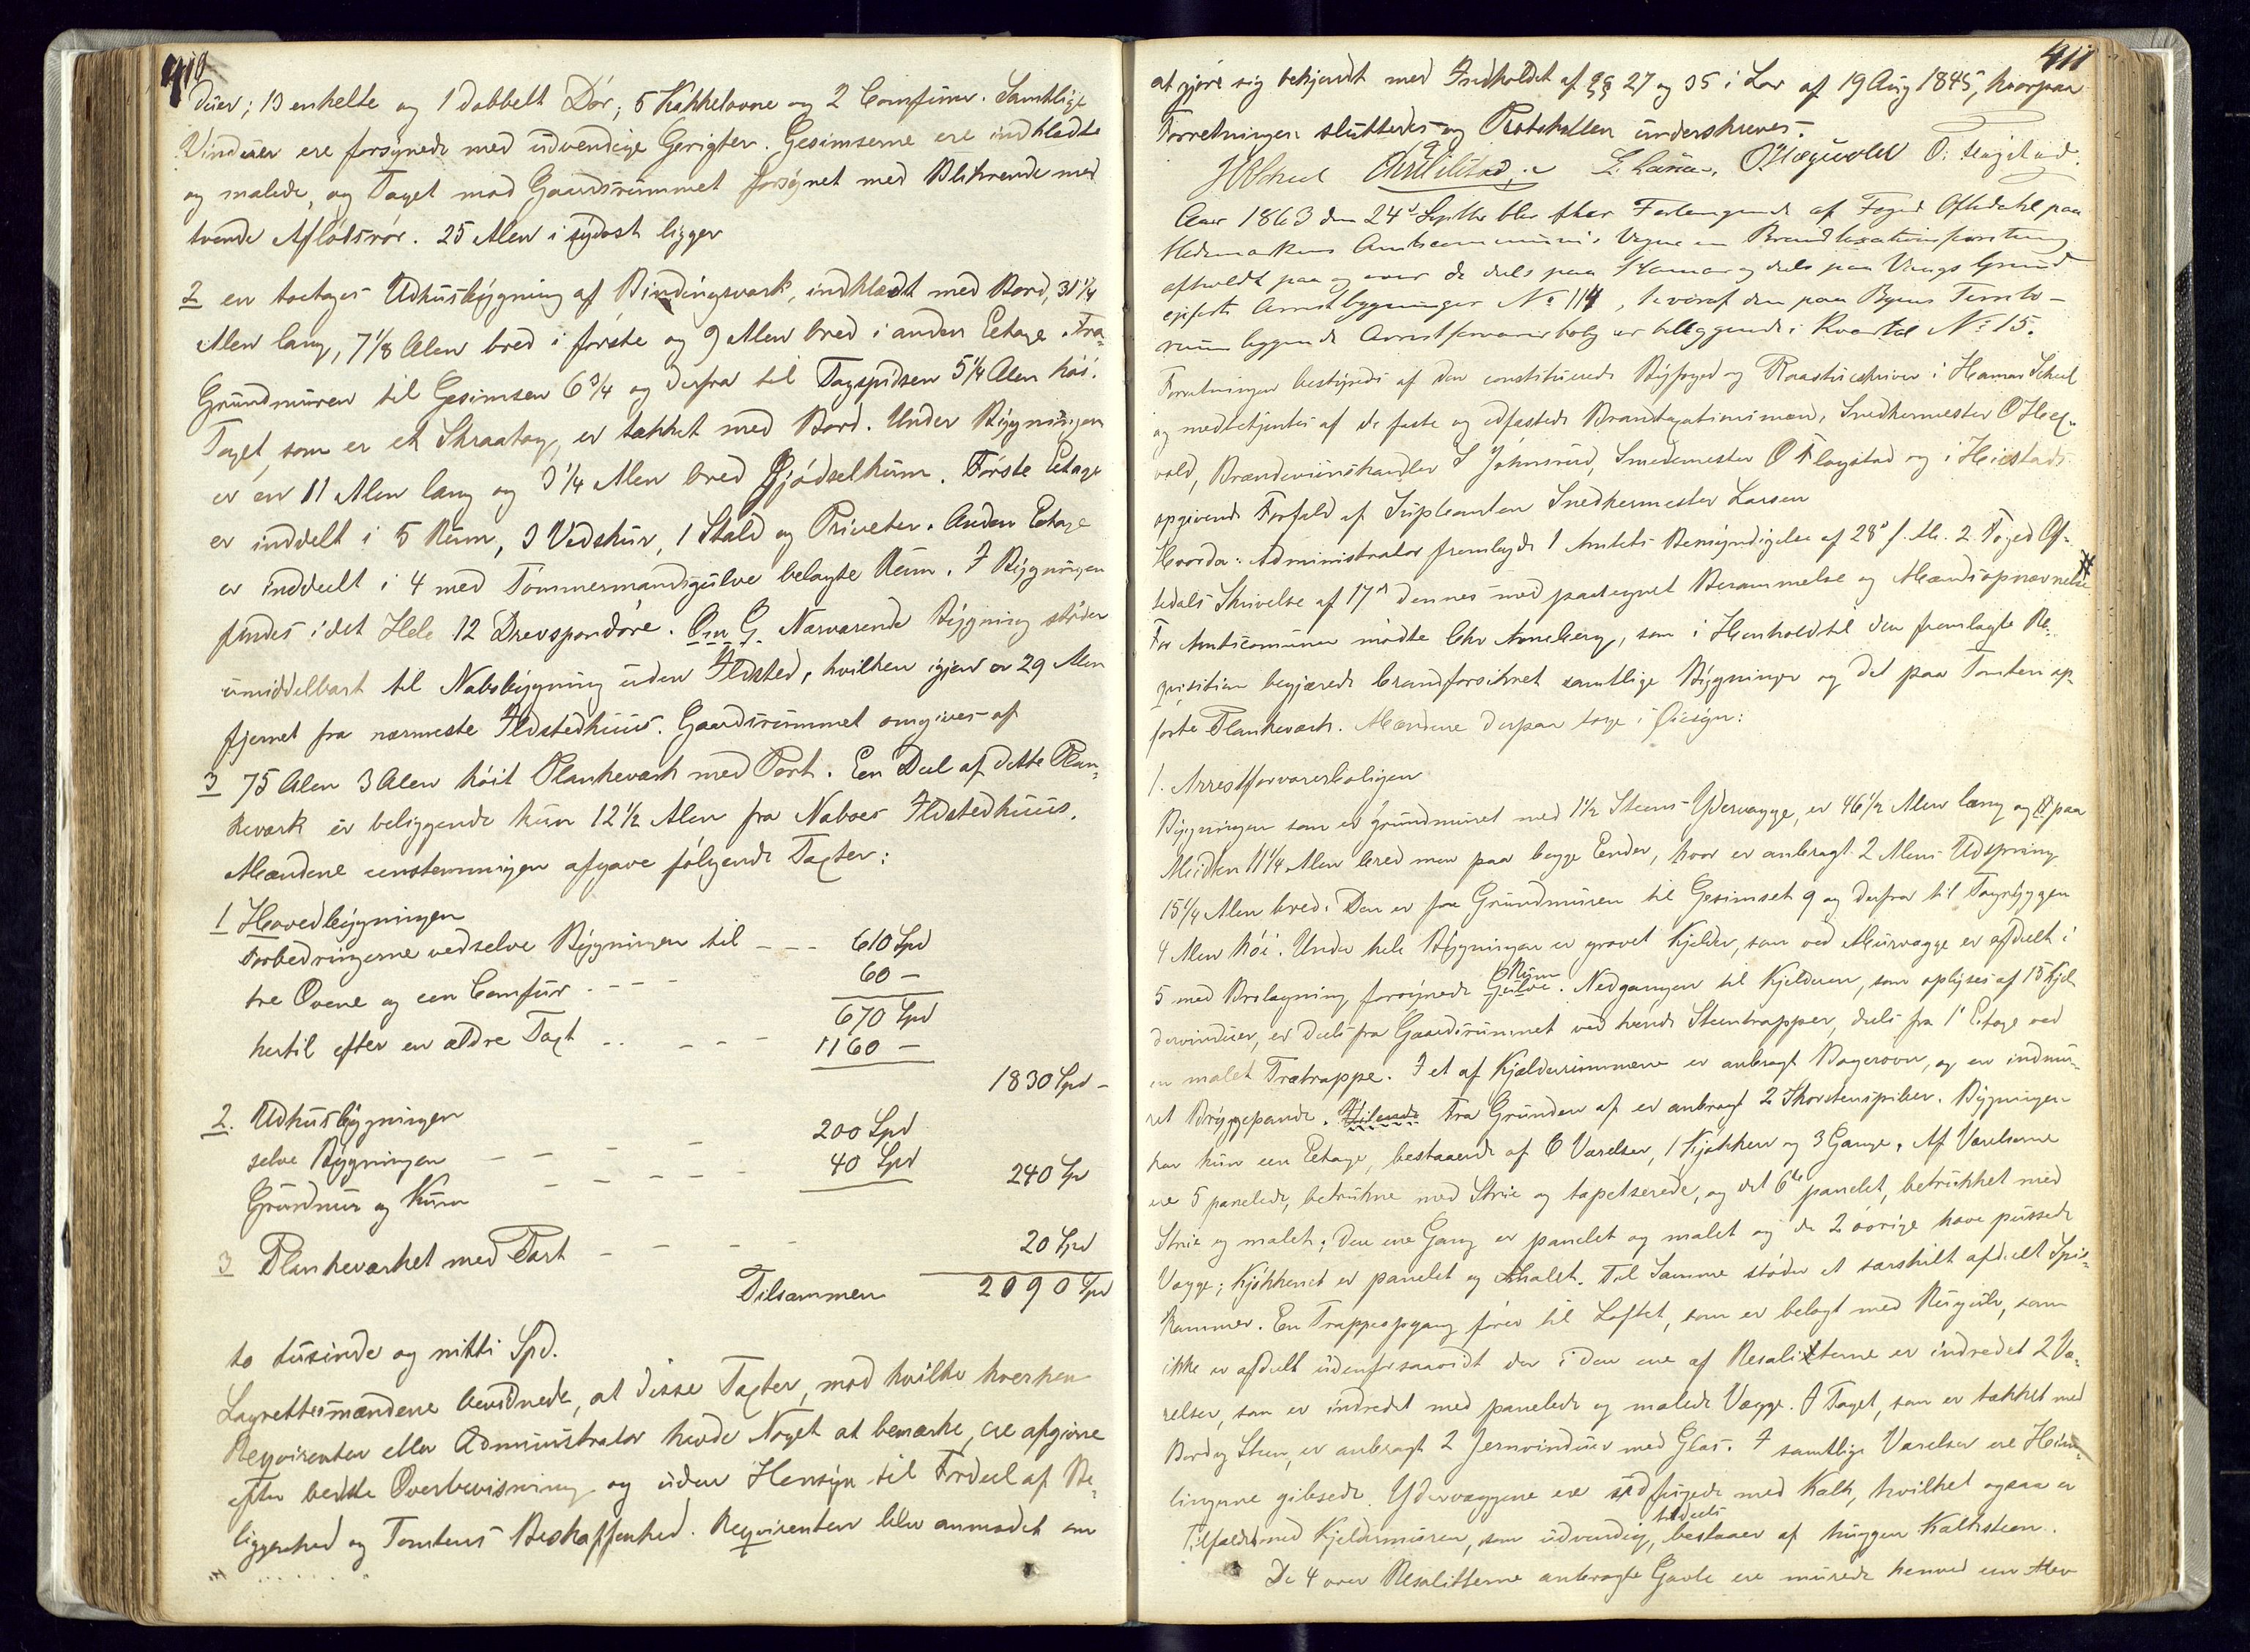 410
duer; 13 enkelte og 1 dobbelt Dør; 5 Kakkelovne og 2 Comfurer. Samtlige
Vinduer ere forsynede med udvendige Gerigter. Gesimserne ere indklædte
og malede, og Taget mod Gaardsrummet forsynet med Blikrende med
tvende Afløbsrør. 25 Alen i sydost ligger
2 en toetages Udhusbygning af Bindingsværk, indklædt med Bord, 31 1/4
Alen lang, 7 1/8 Alen bred i første og 9 Alen bred i anden Eetage. Fra
Grundmuren til Gesimsen 6 3/4 og derfra til Tagspidsen 5 1/4 Alen høi.
Taget, som er et Skraatag, er tækket med Bord. Under Bygningen
er en 11 Alen lang og 3 1/4 Alen bred Gjødselkum. Første Etage
er inddelt i 5 Rum, 3 Vedskur, 1 Stald og Priveter. Anden Eetage
er inddeelt i 4 med Tømmermandsgulve belagte Rum. I Bygningen
findes i det Hele 12 Drevspondøre. Om G. Nærværende Bygning støder
umiddelbart til Nabobygning uden Ildsted, hvilken igjen er 29 Alen
fjernet fra nærmeste Ildstedhuus. Gaardsrummet omgives af
3 75 Alen 3 Alen høit Plankeværk med Port. Een Deel af dette Plan-
keværk er beliggende kun 12 1/2 Alen fra Naboes Ildstedhuus.
Mændene eenstemmigen afgave følgende Taxter:
1 Hovedbygningen
Forbedringerne ved selve Bygningen til - - - 610 Spd
tre Ovne og een Comfur - - - 60 -
670 Spd
hertil efter en ældre Taxt - - - 1160 -
1830 Spd -
2. Udhusbygningen
selve Bygningen - - - 200 Spd
Grundmur og Kum - - - - 40 Spd 240 Sp
3 Plankeværket med Port - - - - 20 Spd
Tilsammen 2090 Spd
to tusinde og nitti Spd.
Lagrettesmændene bevidnede, at disse Taxter, mod hvilke hverken
Reqvirenten eller Administrator havde Noget at bemærke, ere afgivne
efter bedste Overbevisning og uden Hensyn til Fordeel af Be-
liggenhed og Tomtens Beskaffenhed. Reqvirenten blev anmodet om
411
at gjøre sig bekjendt med Indholdet af §§ 27 og 35 i Lov af 19 Aug 1845, hvorpaa
Forretningen sluttedes og Protokollen underskreves.
L. Larsen. O. Hegvold O. Flagstad.
Aar 1863 den 24d Septbr blev efter Forlangende af Foged Oftedahl paa
Hedemarkens Amtscommunes Vegne en Brandtaxationsforretning
afholdt paa og over de dels paa Hamar og dels paa Vangs Grund
opførte Arrestbygninger No 114, hvoraf den paa Byens Territo-
rium liggende Arrestforvarerbolig er beliggende i Kvartal No 15.
Forretningen bestyredes af den constituerede Byfoged og Raadstueskriver i Hamar Scheel
og medbetjentes af de faste og edfæstede Brandtaxationsmænd, Snedkermester O Heg-
vold, Brændeviinshandler S Johnsrud, Smedemester O Flagstad og i Hielstads
opgivende Forfald af Supleanten Snedkermester Larsen
Hvorda: Administrator fremlagde 1 Amtets Bemyndigelse af 28d f. M. 2. Foged Of-
tedals Skrivelse af 17d dennes med paategnet Berammelse og Mændsopnævnelse
For Amtscommunen mødte Chr Anneberg, som i Henhold til den fremlagte Re-
qvisition begjærede brandforsikret samtlige Bygninger og det paa Tomten op-
førte Plankeværk. Mændene derpaa toge i Øiesyn:
1. Arrestforvarerboligen
Bygningen som er grundmuret med 1 1/2 Steens Ydervægge, er 46 1/2 Alen lang og paa
Midten 11 1/4 Alen bred men paa begge Ender, hvor er anbragt 2 Alens Udspring
15 1/4 Alen bred. Den er fra Grundmuren til Gesimset 9 og derfra til Tagryggen
4 Alen høi. Under hele Bygningen er gravet Kjelder, som ved Muurvægge er afdeelt i
5 med Brolægning forsynede Gulve Rum. Nedgangen til Kjelderen, som oplyses af 15 Kjel-
dervinduer, er deels fra Gaardsrummet ved tvende Steentrapper, deels fra 1e Etage ved
en malet Trætrappe. I et af Kjelderrummene er anbragt Bagerovn, og en indmu-
ret Bryggepande. Fra Grunden af er anbragt 2 Skorsteenspiber. Bygningen
har kun een Eetage, bestaaende af 6 Værelser, 1 Kjøkken og 3 Gange. Af Værelserne
ere 5 panelede, betrukne med Strie og tapetserede, og det 6te panelet, betrukket med
Strie og malet; den ene Gang er panelet og malet og de 2 øvrige have pussede
Vægge; Kjøkkenet er panelet og malet. Til Samme støder et særskilt afdeelt Spis-
kammer. En Trappeopgang fører til Loftet, som er belagt med Rugulv, som
ikke er afdeelt udenforsaavidt der i den ene af Resalitterne er indredet 2 Væ-
relser, som er indredet med panelede og malede Vægge. I Taget, som er tækket med
Bord og Steen, er anbragt 2 Jernvinduer med Glas. I samtlige Værelser ere Him-
lingerne gibsede. Ydervæggene ere udfugede med Kalk, hvilket ogsaa er
Tilfældet med Kjeldermuren, som udvendig tildeels bestaaer af huggen Kalksteen.
De 4 over Resalitterne anbragte Gavle ere murede henved een Alen